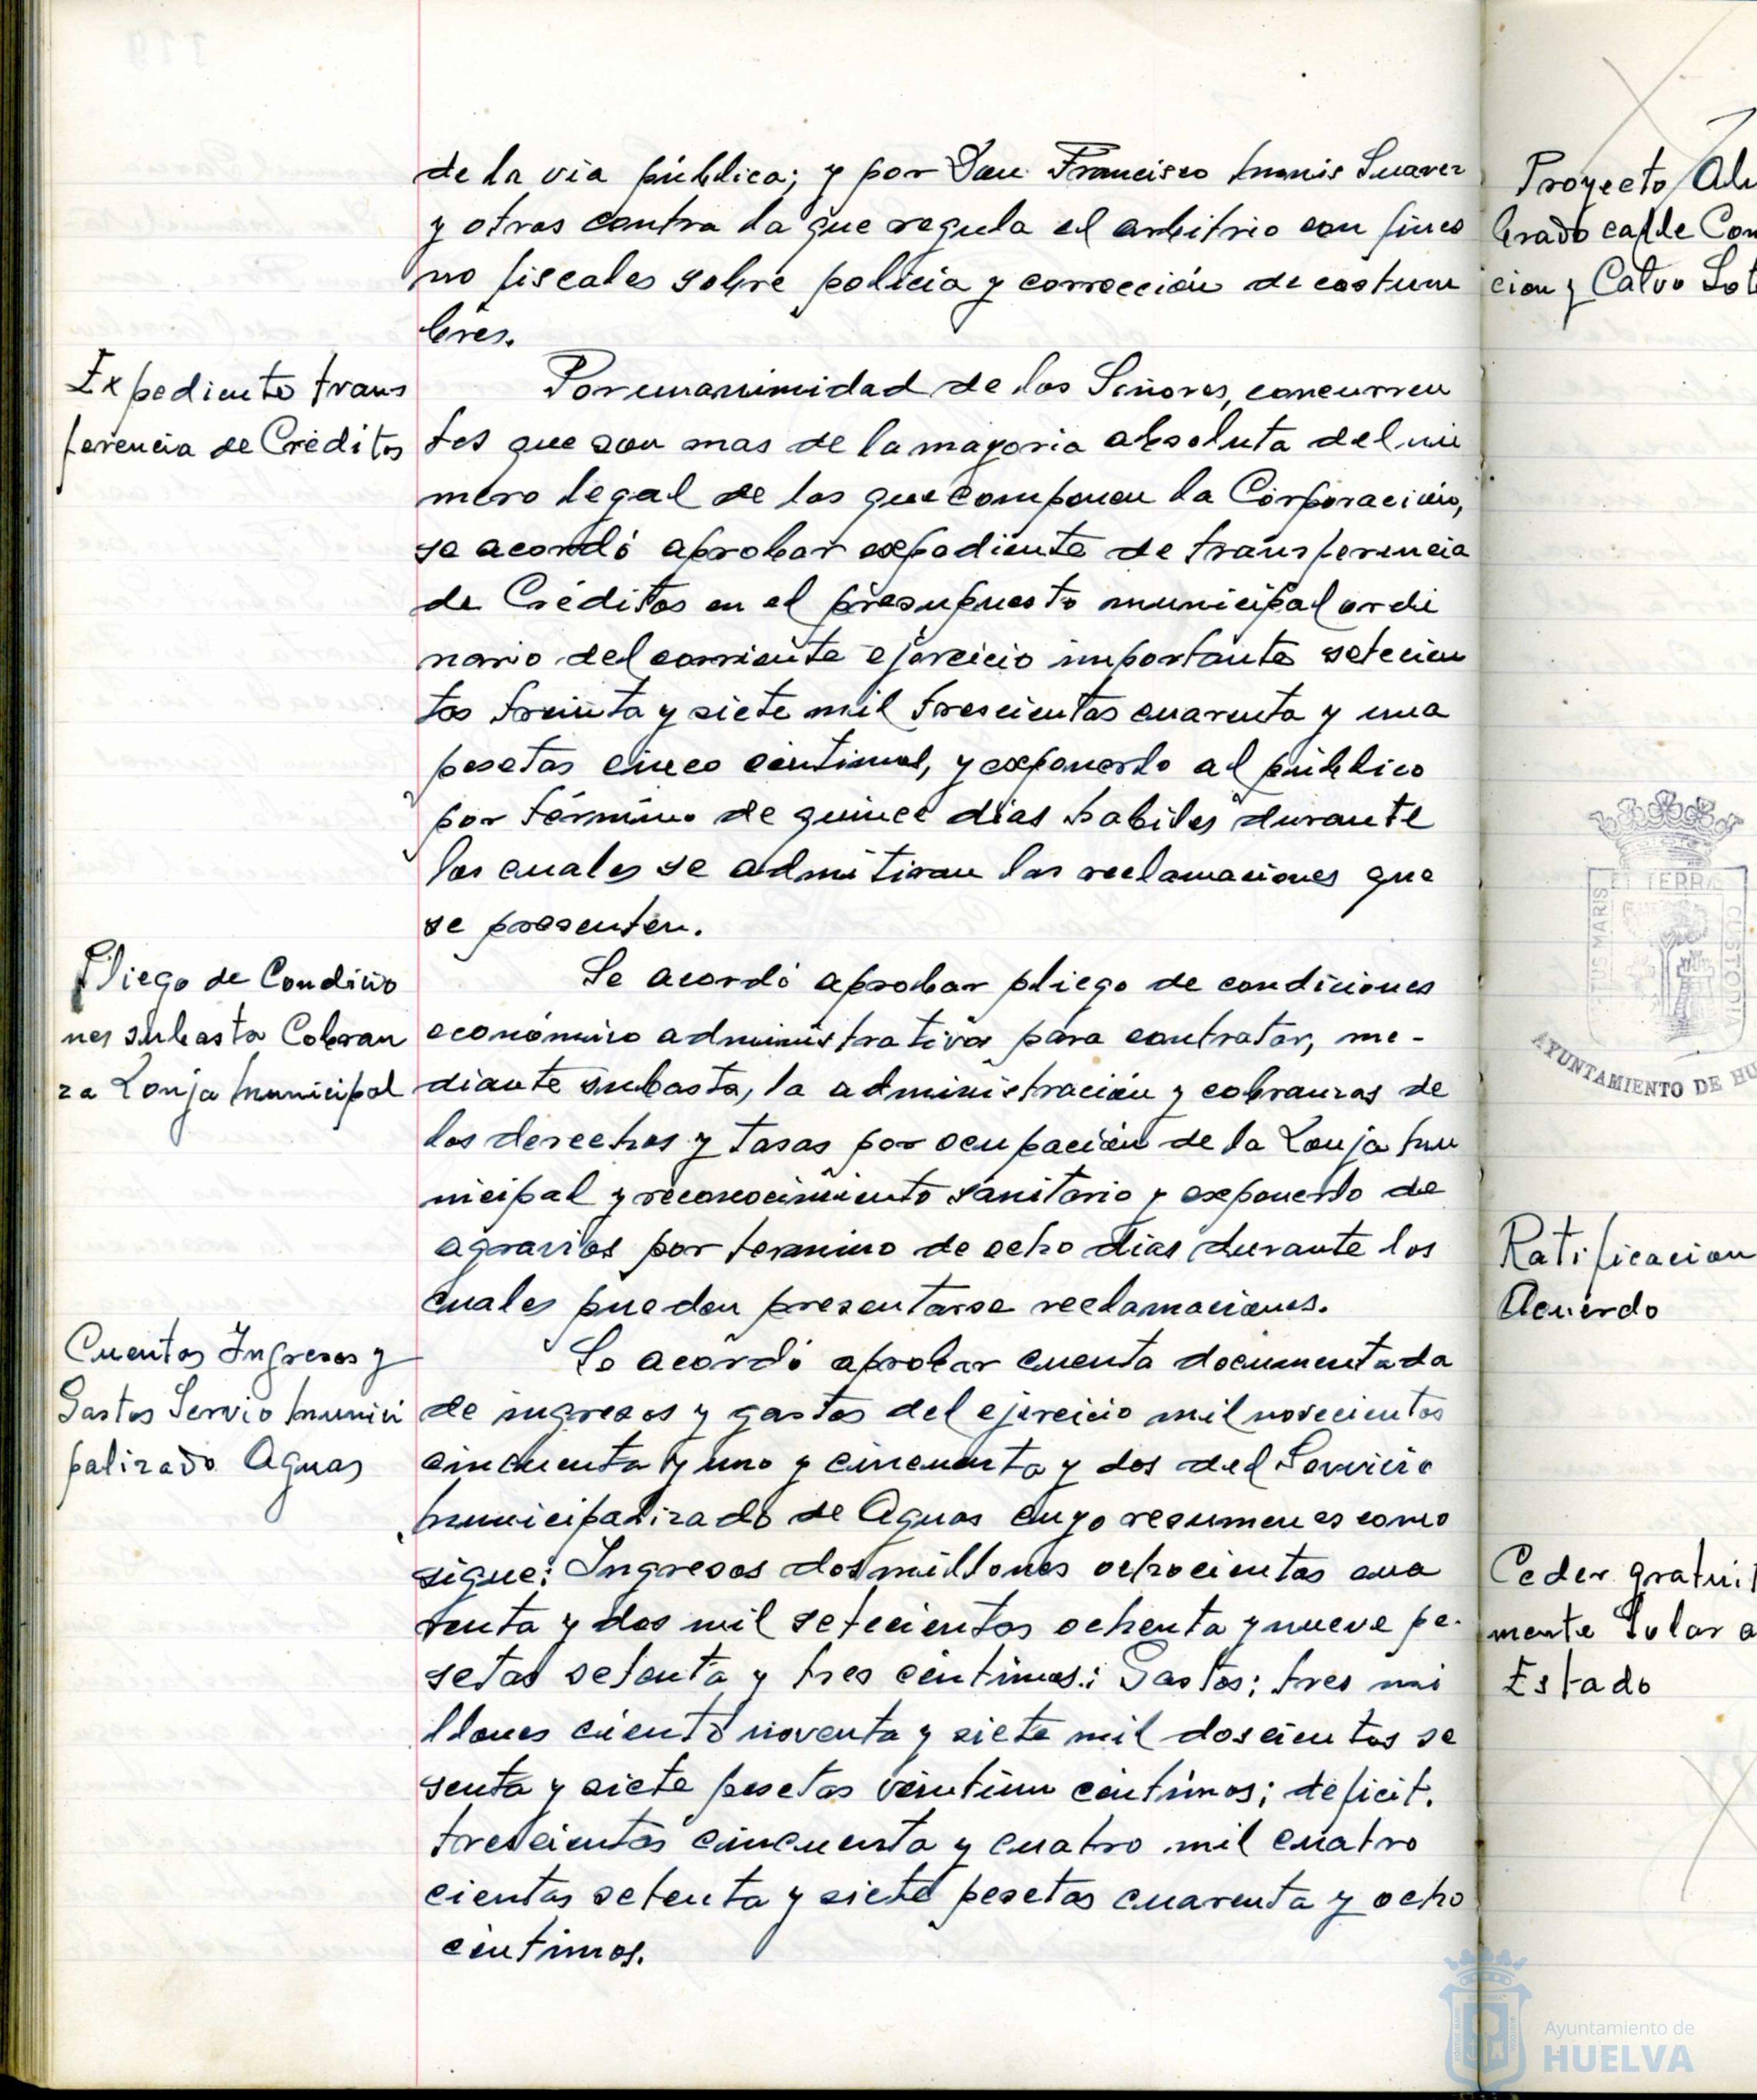 de la via pública; y por Don Francisco Munis Suarez
y otros contra la que regula el arbitrio con fines
no fiscales sobre policía y corrección de costum
bres.
Expediente trans
ferencia de Créditos
Por unanimidad de los Señores, concurren
tes que son mas de la mayoria absoluta del nú
mero legal de los que componen la Corporación,
se acordó aprobar expediente de transferencia
de Créditos en el presupuesto municipal ordi
nario del corriente ejercicio importante setecien
tos treinta y siete mil trescientas cuarenta y una
pesetas cinco céntimos, y exponerlo al público
por término de quince días habiles durante
los cuales se admitiran las reclamaciones que
se presenten.
Pliego de Condicio
nes subasta Cobran
za Lonja Municipal
Se acordó aprobar pliego de condiciones
económico administrativas para contratar, me-
diante subasta, la administración y cobranzas de
los derechos y tasas por ocupación de la Lonja Mu
nicipal y reconocimiento sanitario y exponerlo de
agravios por termino de ocho días durante los
cuales pueden presentarse reclamaciones.
Cuentas Ingresos y
Gastos Servio Munici
palizado Aguas
Se acordó aprobar cuenta documentada
de ingresos y gastos del ejercicio mil novecientos
cincuenta y uno y cincuenta y dos del Servicio
Municipalizado de Aguas cuyo resumen es como
sigue: Ingresos dos millones ochocientas cua
renta y dos mil setecientas ochenta y nueve pe-
setas setenta y tres céntimos: Gastos: tres mi
llones ciento noventa y siete mil doscientas se
senta y siete pesetas veintiun céntimos; déficit.
trescientas cincuenta y cuatro mil cuatro
cientas setenta y siete pesetas cuarenta y ocho
céntimos.
Proyecto Alu
brado calle Con
cion y Calvo Sot
ET TERRA
TUS MARIS
CUSTODIA
AYUNTAMIENTO DE HU
Ratificacion
Acuerdo
Ceder gratuit
mente Solar a
Estado
Ayuntamiento de
HUELVA